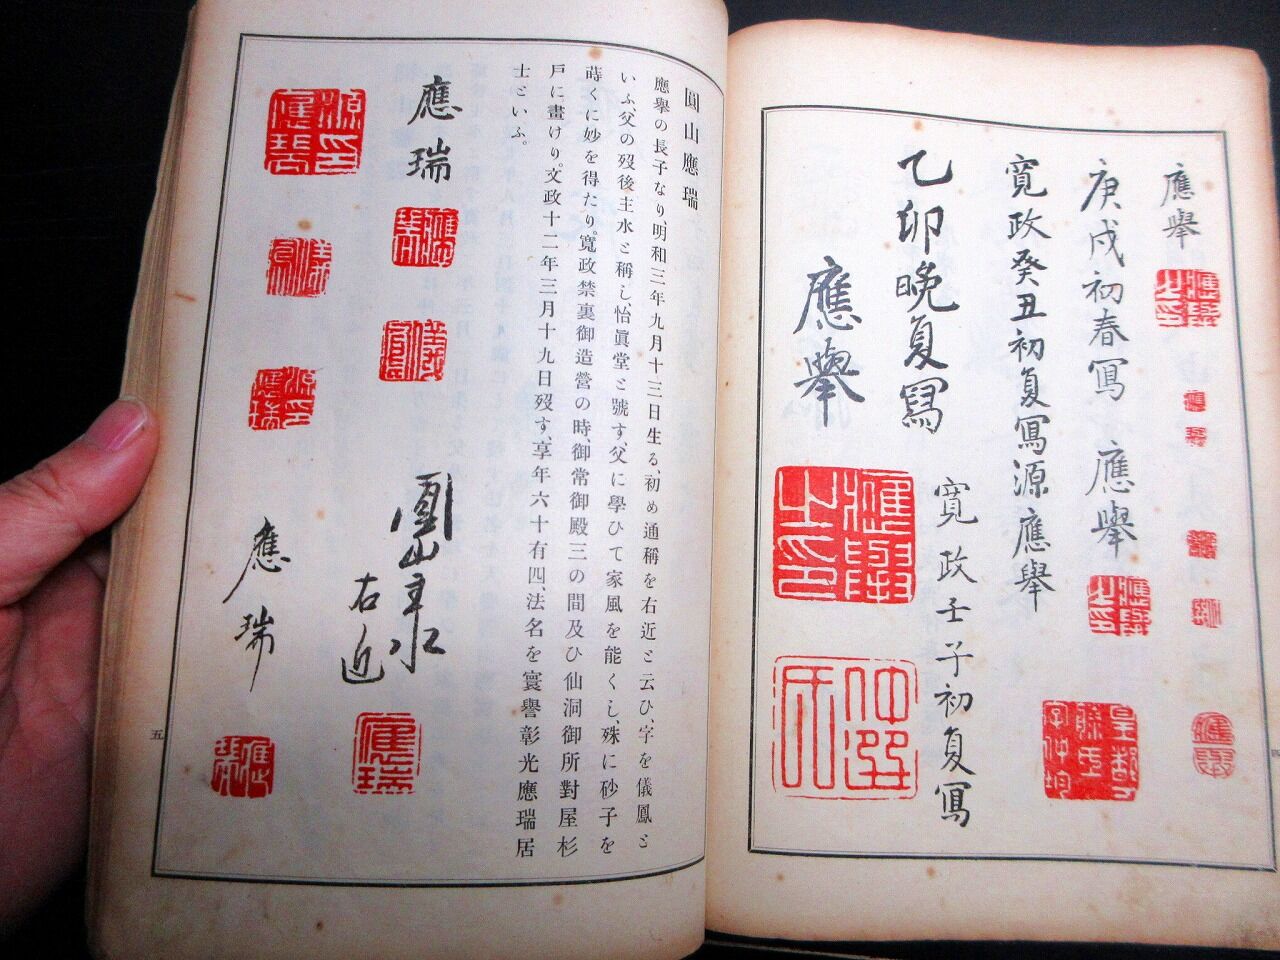 應擧
應擧之印
庚戌初春寫 應擧
應擧之印
寛政癸丑初夏寫源應擧
寛政壬子初夏寫
乙卯晩夏寫
應擧
應擧之印
仲選氏
四
圓山應瑞
應擧の長子なり、明和三年九月十三日生る、初め通稱を右近と云ひ、字を儀鳳と
いふ、父の歿後主水と稱し、怡眞堂と號す、父に學ひて家風を能くし、殊に砂子を
蒔くに妙を得たり。寛政禁裏御造營の時、御常御殿三の間及ひ仙洞御所對屋杉
戸に畫けり。文政十二年三月十九日歿す、享年六十有四、法名を寰譽彰光應瑞居
士といふ。
應瑞
應瑞
儀鳳
圓山主水
右近
應瑞
源印應瑞
儀鳳
源印應瑞
應瑞
應瑞
五